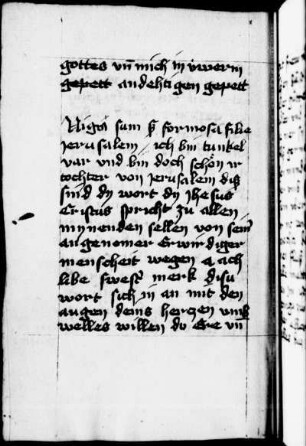 gottes vn̄ mich in ẘwerm
gepett andehtigen gepett
Nigra sum s̄ formosa filie
jerusalem ich bin tunkel
var vnd bin doch schon ir
tochter von jerusalem diß
sind dy wort dy jhesus
Cristus spricht zu allen
mynenden sellen von seiner
angenomer Erwirdiger
menscheit wegen ach
libe swest' merk disu
wort sich in an mit den
augen deins hertzen vmb
welles willen do Ere vn̄